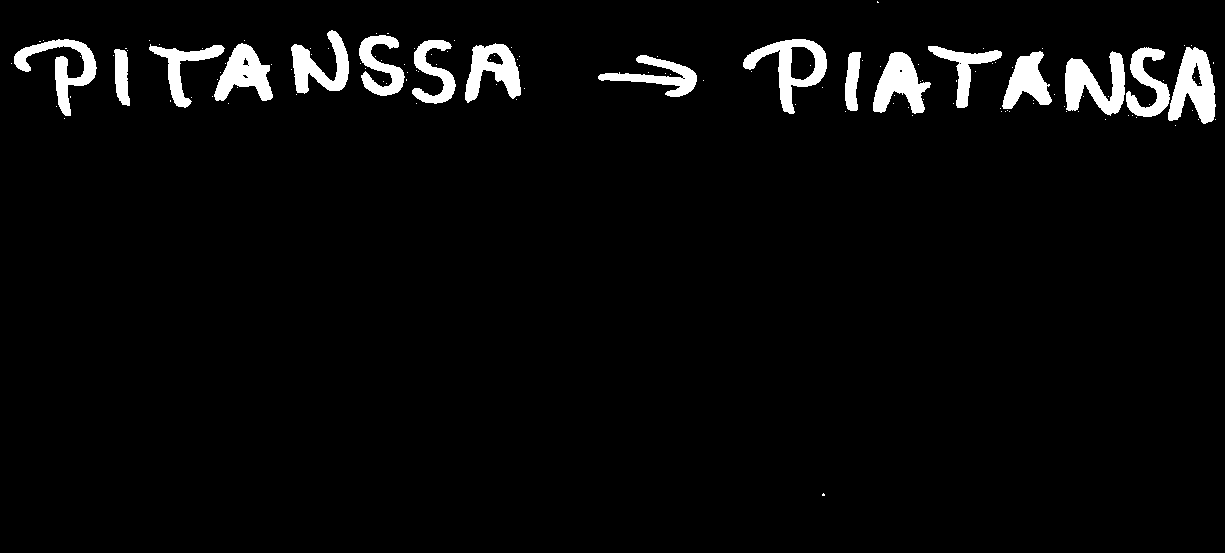 PITANSSA → PIATANSA